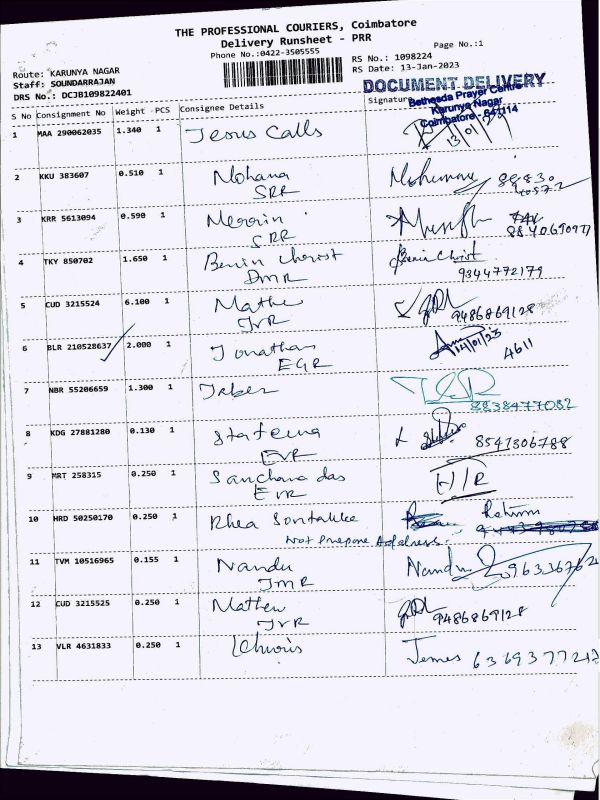 THE PROFESSIONAL COURIERS, Coimbatore
Delivery Runsheet - PRR
Phone No.:0422-3505555
Page No.:1
RS No.: 1098224
RS Date: 13-Jan-2023
Route: KARUNYA NAGAR
Staff: SOUNDARRAJAN
DRS No.: DCJB109822401
DOCUMENT DELIVERY
S No Consignment No Weight PCS Consignee Details Signatur
Bethesda Prayer Centre
Karunya Nagar
Coimbatore - 641114
1 MAA 290062035 1.340 1 Jesus Calls
2 KKU 383607 0.510 1 Mohana
SRR
3 KRR 5613094 0.590 1 Merrin
SRR
4 TKY 850702 1.650 1 Benin Christ Benin Christ
DMR 9344772179
5 CUD 3215524 6.100 1 Mathew
JVR 9486869128
6 BLR 210528637 2.000 1 Jonathan 14/01/23
EGR 4611
7 NBR 55206659 1.300 1 Jabez
8838477082
8 KDG 27881280 0.130 1
EVR 8547306788
9 MRT 258315 0.250 1 Sanchana das
EVR
10 HRD 50250170 0.250 1 Rhea Return
Not Prepare Address.
11 TVM 10516965 0.155 1 Nandu Nandu
JMR
12 CUD 3215525 0.250 1 Mathew
JVR 9486869128
13 VLR 4631833 0.250 1 James